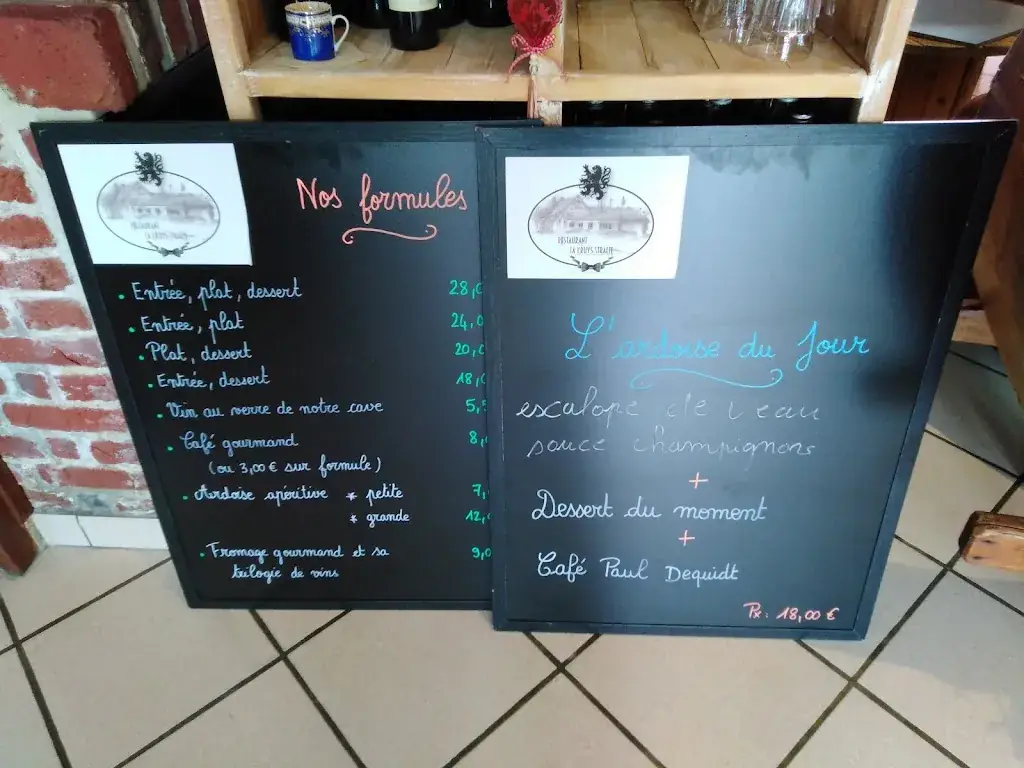 Nos formules
• Entrée, plat, dessert 28,0
• Entrée, plat 24,0
• Plat, dessert 20,0
• Entrée, dessert 18,0
• Vin au verre de notre cave 5,5
• Café gourmand 8,
(ou 3,00 € sur formule)
• Ardoise apéritive * petite 7,
* grande 12,0
• Fromage gourmand et sa 9,0
trilogie de vins
RESTAURANT
L'ardoise du Jour
escalope de veau
sauce champignons
+
Dessert du moment
+
Café Paul Dequidt
Px : 18,00 €